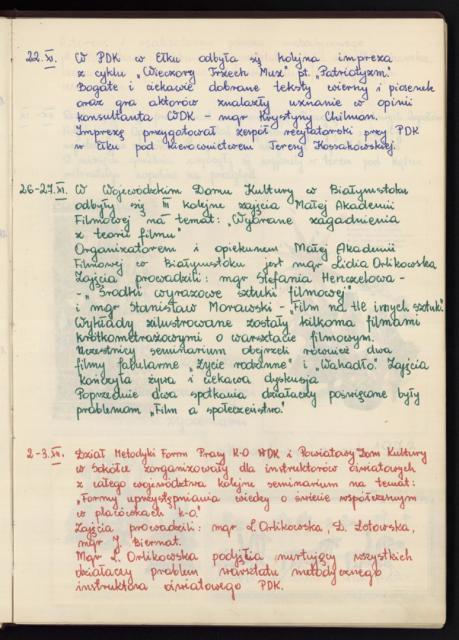 22.XI. W PDK w Ełku odbyła się kolejna impreza
z cyklu „Wieczory Trzech Muz" pt. „Patriotyzm"
Bogate i ciekawie dobrane teksty wierszy i piosenek
oraz gra aktorów znalazły uznanie w opinii
konsultanta WDK - mgr Krystyny Chilman.
Imprezę przygotował zespół recytatorski przy PDK
w Ełku pod kierownictwem Teresy Kossakowskiej
26-27.XI. W Wojewódzkim Domu Kultury w Białymstoku
odbyły się III kolejne zajęcia Małej Akademii
Filmowej na temat: „Wybrane zagadnienia
z teorii filmu"
Organizatorem i opiekunem Małej Akademii
Filmowej w Białymstoku jest mgr Lidia Orlikowska
Zajęcia prowadzili: mgr Stefania Henczelowa -
- „Środki wyrazowe sztuki filmowej"
i mgr Stanisław Morawski - „Film na tle innych sztuk".
Wykłady zilustrowane zostały kilkoma filmami
krótkometrażowymi o warsztacie filmowym.
Uczestnicy seminarium obejrzeli również dwa
filmy fabularne „Życie rodzinne" i „Wahadło". Zajęcia
kończyła żywa i ciekawa dyskusja
Poprzednie dwa spotkania działaczy poświęcone były
problemom „Film a społeczeństwo."
2-3.XII. Dział Metodyki Form Pracy K-O WDK i Powiatowy Dom Kultury
w Sokółce zorganizowały dla instruktorów oświatowych
z całego województwa kolejne seminarium na temat:
„Formy uprzystępniania wiedzy o świecie współczesnym
w placówkach k-o."
Zajęcia prowadzili: mgr L. Orlikowska, D. Łotowska,
mgr J. Biernat.
Mgr L. Orlikowska podjęła nurtujący wszystkich
działaczy problem warsztatu metodycznego
instruktora oświatowego PDK.